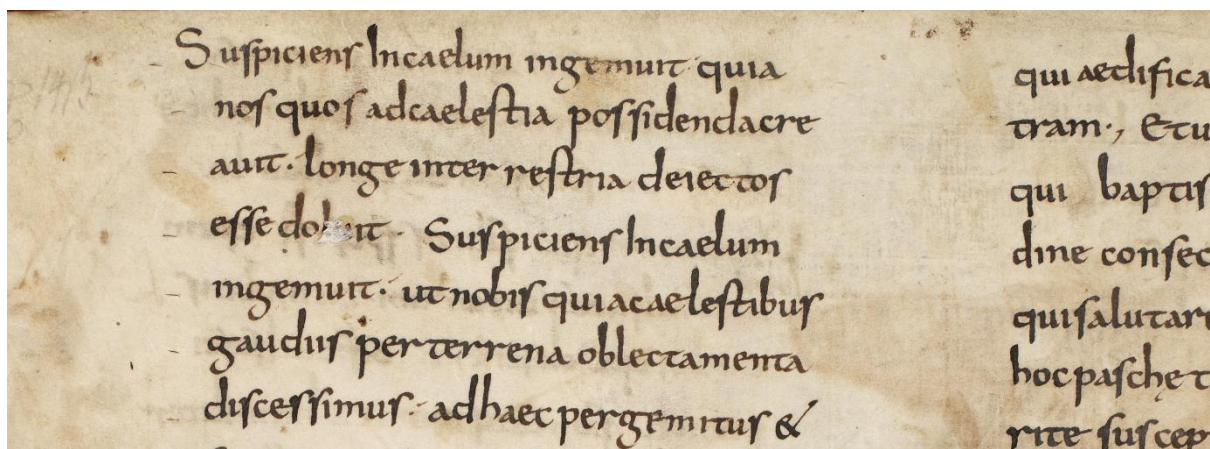 Suspiciens Incaelum ingemuit quia
nos quos adcaelestia possidendacre
auit· longe inter restria deiectos
esse doluit · Suspiciens Incaelum
ingemuit· ut nobis quiacaelestibus
gaudiis per terrena oblectamenta
discessimus· adhaec pergemitus &
qui aedifica
tram·, Etu
qui baptis
dine consec
qui salutare
hoc pasche t
rite suscep